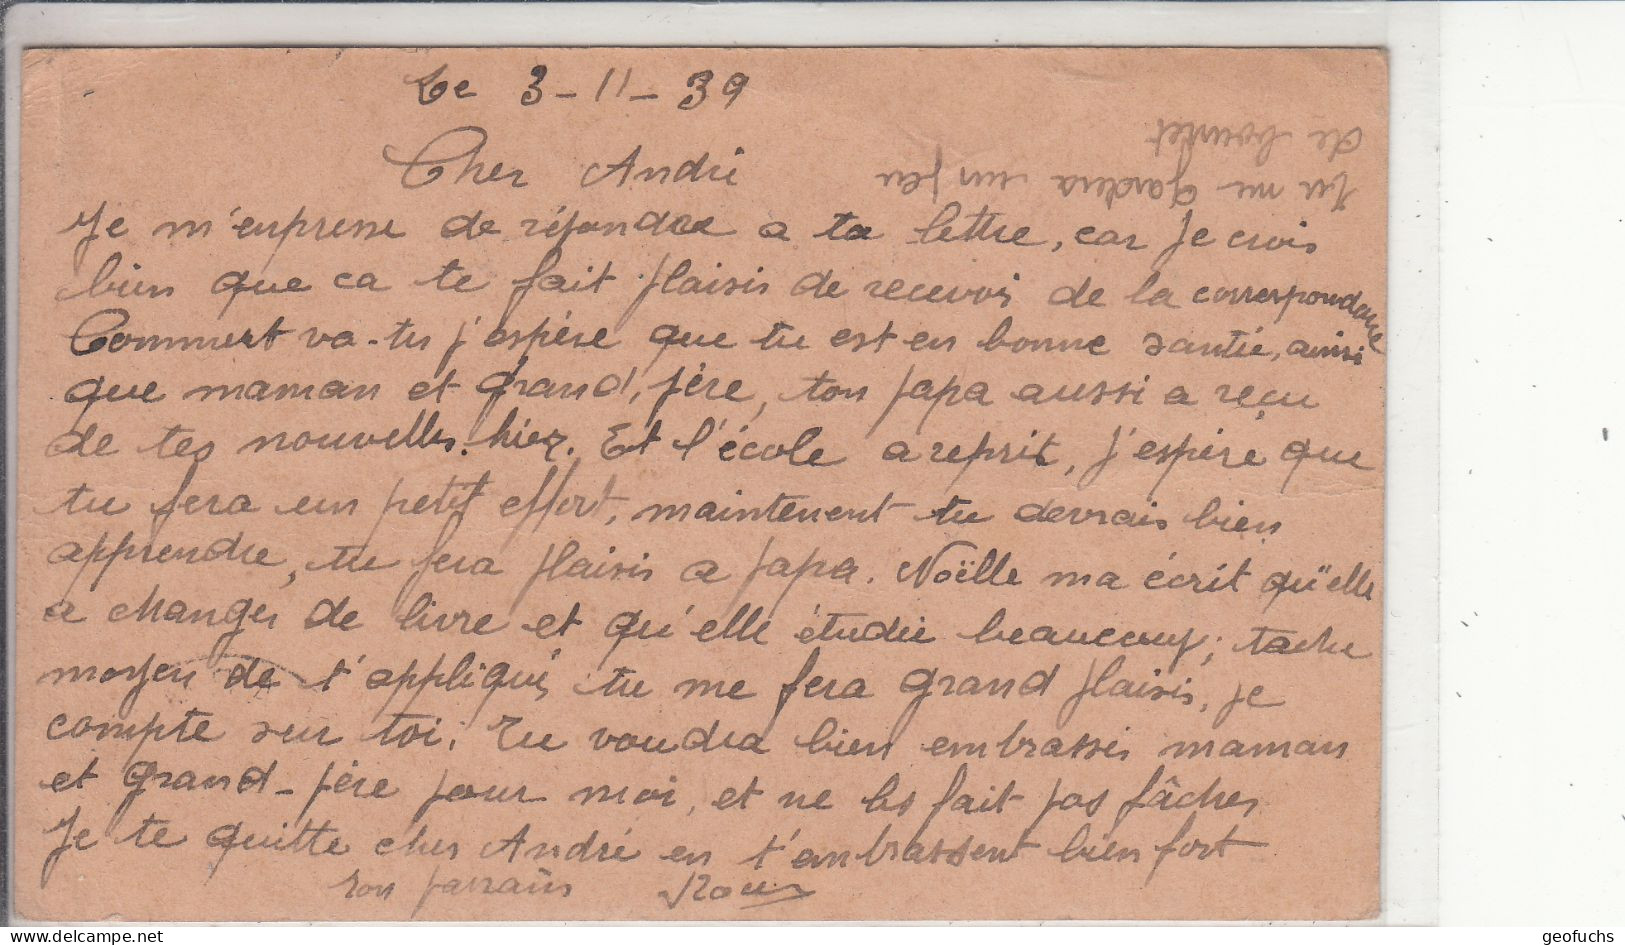 Le 3-11-39
Cher André
Tu me gardera un peu
de boudet
Je m'enpresse de répondre a ta lettre, car je crois
bien que ca te fait plaisir de recevoir de la correspondance
Comment va-tu j'espère que tu est en bonne santié, ainsi
que maman et grand, père, ton papa aussi a reçu
de tes nouvelles. hier. Et l'école a reprit, j'espère que
tu fera un petit effort, maintenent tu devrais bien
apprendre, tu fera plaisir a papa. Noëlle ma écrit qu'elle
a changer de livre et qu'elle étudie beaucoup; tache
moyen de t'appliqué, tu me fera grand plaisir, je
compte sur toi. Tu voudra bien embrasser maman
et grand-père pour moi, et ne les fait pas fâcher
Je te quitte cher André en t'embrassent bien fort
ton parrain Roux
geofuchs